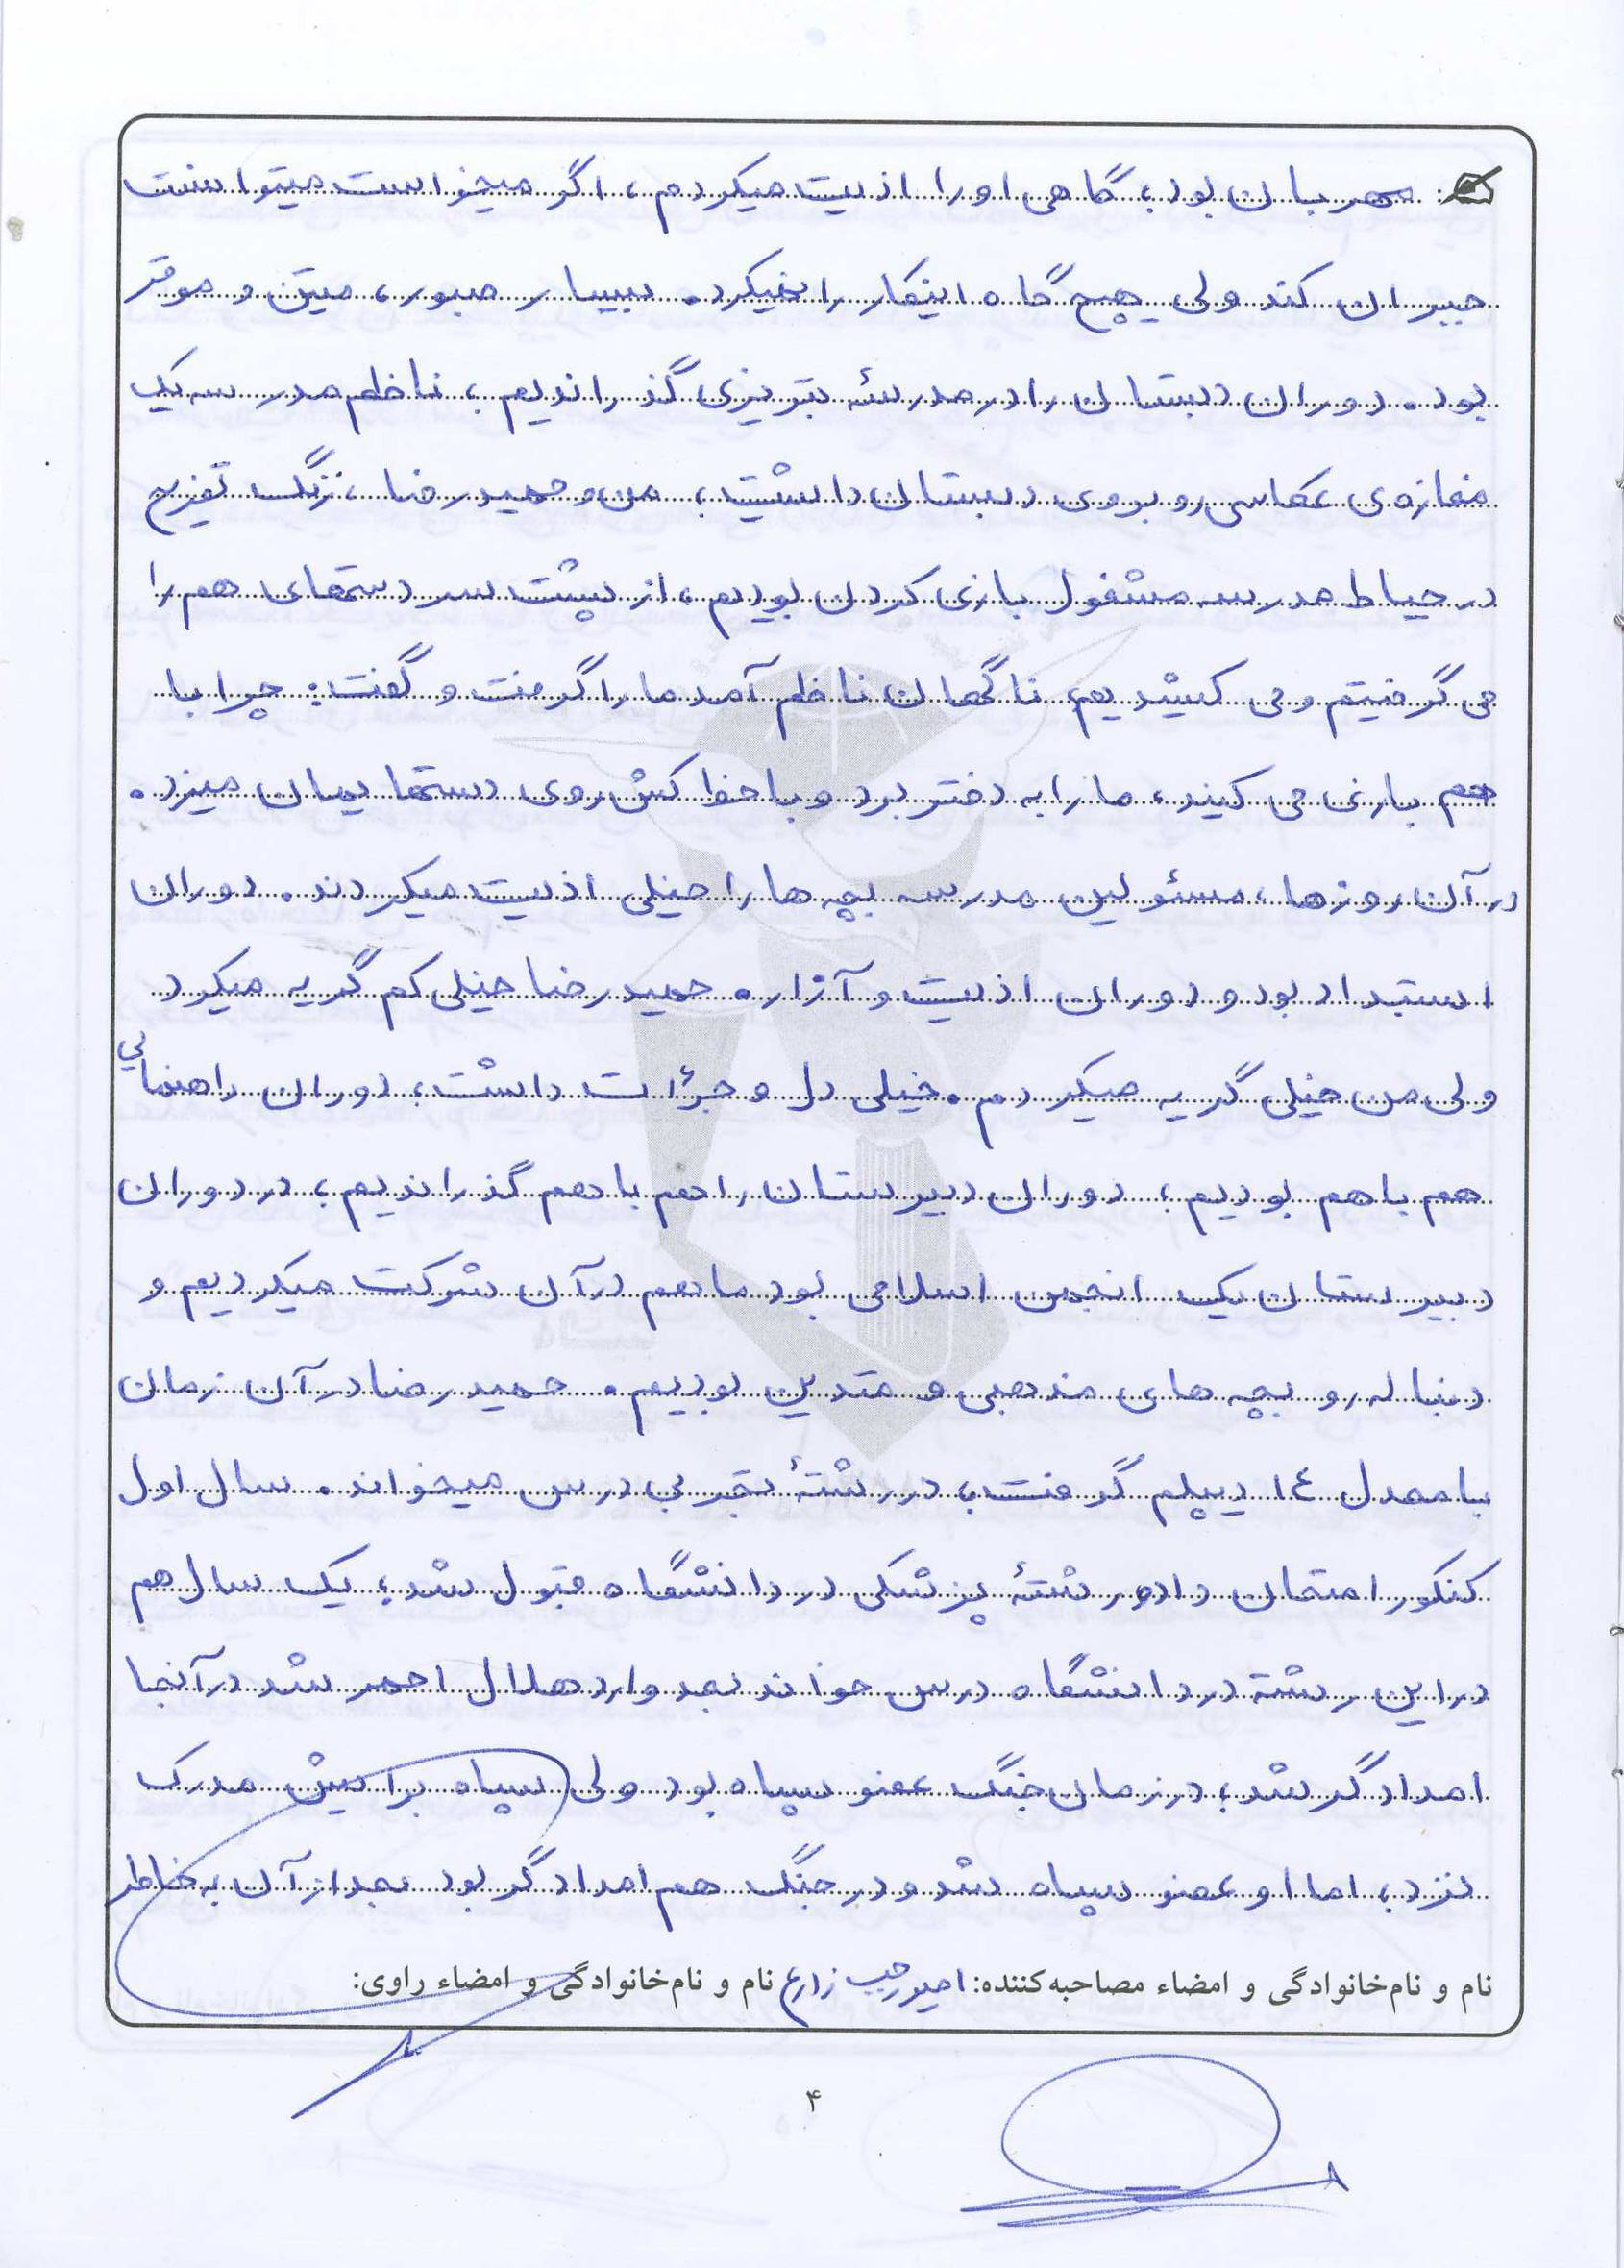 مهربان بود، گاهی او را اذیت میکردم، اگر میخواست میتوانست
جبران کند ولی هیچ گاه اینکار را نمیکرد. بسیار صبور، متین و موقر
بود. دوران دبستان را در مدرسهٔ تبریزی گذراندیم، ناظم مدرسه یک
مغازه‌ی عکاسی روبروی دبستان داشت، من و حمیدرضا، زنگ تفریح
در حیاط مدرسه مشغول بازی کردن بودیم، از پشت سر دستهای هم را
می گرفتیم و می کشیدیم، ناگهان ناظم آمد ما را گرفت و گفت: چرا با
هم بازی می کنید، ما را به دفتر برد و با خط کش روی دستهایمان میزد.
در آن روزها، مسئولین مدرسه بچه ها را خیلی اذیت میکردند. دوران
استبداد بود و دوران اذیت و آزار. حمیدرضا خیلی کم گریه میکرد
ولی من خیلی گریه میکردم. خیلی دل و جرأت داشت، دوران راهنمایی
هم با هم بودیم، دوران دبیرستان را هم با هم گذراندیم، در دوران
دبیرستان یک انجمن اسلامی بود ما هم در آن شرکت میکردیم و
دنباله رو بچه های مذهبی و متدین بودیم. حمیدرضا در آن زمان
با معدل ١٤ دیپلم گرفت، در رشتهٔ تجربی درس میخواند. سال اول
کنکور امتحان داد و رشتهٔ پزشکی در دانشگاه قبول شد، یک سال هم
در این رشته در دانشگاه درس خواند بعد وارد هلال احمر شد در آنجا
امدادگر شد، در زمان جنگ عضو سپاه بود ولی سپاه برایش مدرک
نزد، اما او عضو سپاه شد و در جنگ هم امدادگر بود بعد از آن به خاطر
نام و نام‌خانوادگی و امضاء مصاحبه‌کننده: امیر رجب زارع نام و نام‌خانوادگی و امضاء راوی:
۴